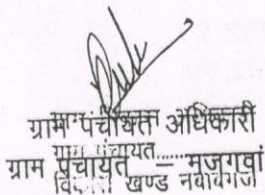 ग्राम पंचायत अधिकारी
ग्राम पंचायत.......
ग्राम पंचायत – मजगवां
विकास खण्ड नवाबगंज